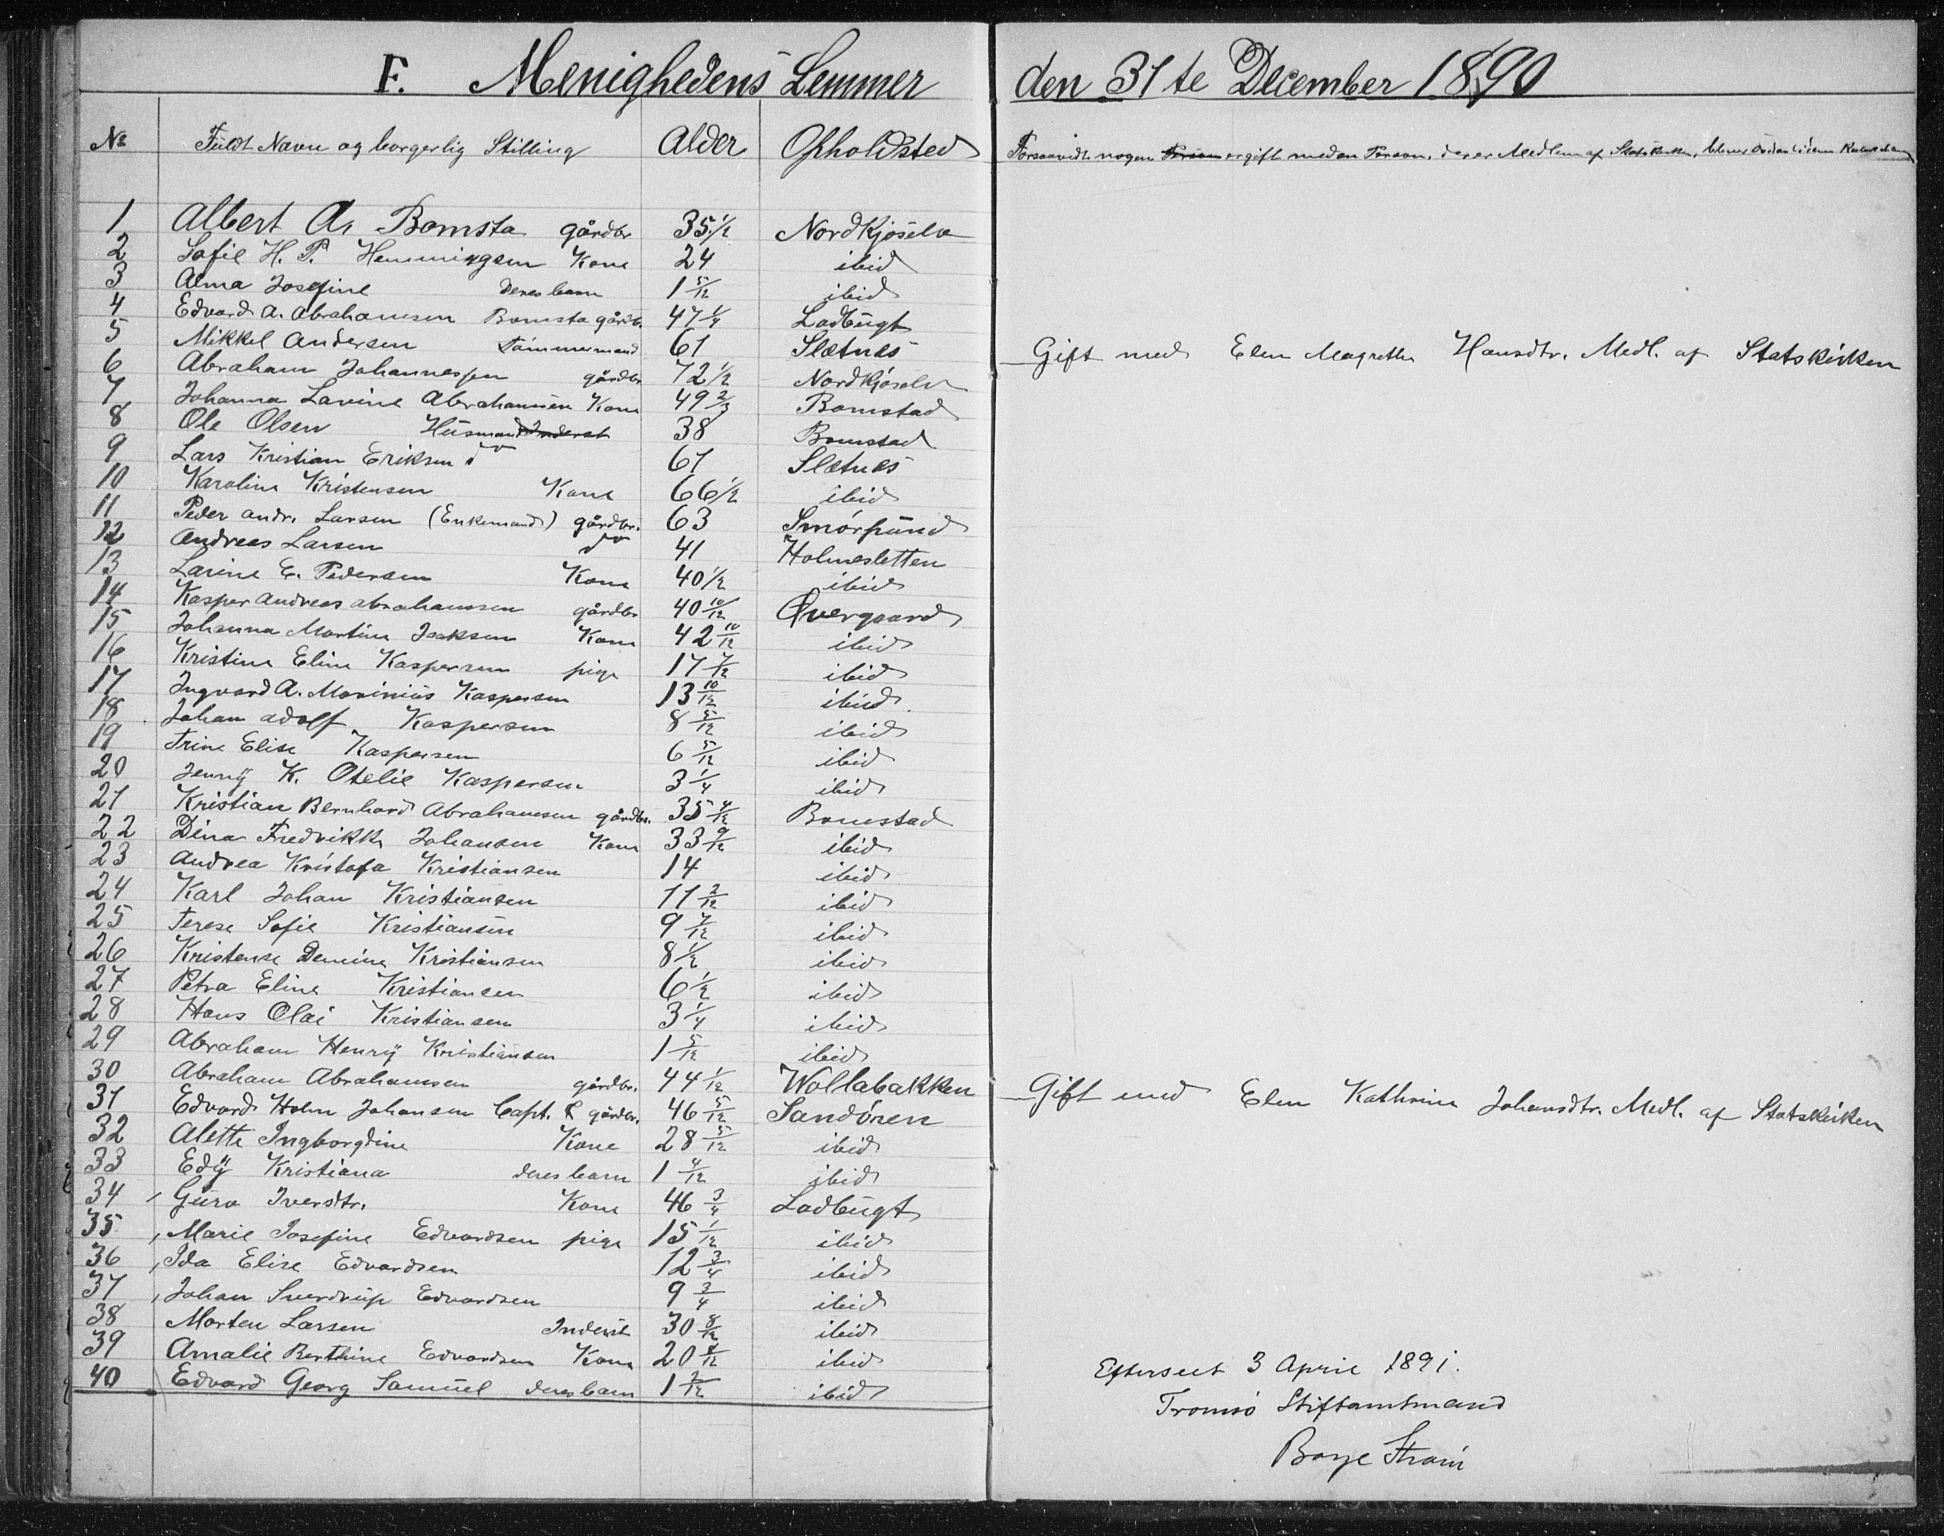 F. Menighedens Lemmer den 31te December 1890
No Fuldt Navn og borgerlig Stilling Alder Opholdsted Forsaavidt nogen er gift med en Person, der er Medlem af Statskirken, bliver
1 Albert A. Bomsta gårdbr 35 1/2 Nordkjoselv
2 Sofie H. P. Henningsen Kone 24 ibid
3 Alma Josefine deres barn 1 5/12 ibid
4 Edvard A. Abrahamsen Bomsta gårdb. 47 1/4 Ladbugt
5 Mikkel Andersen Tømmermand 61 Slætnes Gift med Elen Magrethe Hansdtr. Medl. af Statskirken
6 Abraham Johannessen gårdbr 72 1/2 Nordkjoselv
7 Johanna Lavine Abrahamsen Kone 49 2/3 Bomstad
8 Ole Olsen Husmand Inderst 38 Bomstad
9 Lars Kristian Eriksen do 61 Slætnes
10 Karoline Kristensen Kone 66 1/2 ibid
11 Peder Andr. Larsen (Enkemand) gårdbr. 63 Smørfund
12 Andreas Larsen do 41 Holmesletten
13 Larine E. Pedersen Kone 40 1/2 ibid
14 Kasper Andreas Abrahamsen gårdbr 40 10/12 Øvergaard
15 Johanna Martine Isaksen Kone 42 10/12 ibid
16 Kristine Eline Kaspersen pige 17 7/12 ibid
17 Ingvard A. Mariniús Kaspersen 13 10/12 ibid.
18 Johan Adolf Kaspersen 8 5/12 ibid
19 Trine Elise Kaspersen 6 5/12 ibid
20 Jenny K. Otelie Kaspersen 3 1/4 ibid
21 Kristian Bernhard Abrahamsen gårdbr. 35 4/12 Bomstad
22 Dina Fredrikke Johansen Kone 33 9/12 ibid
23 Andrea Kristofa Kristiansen 14 ibid
24 Karl Johan Kristiansen 11 2/12 ibid
25 Terese Sofie Kristiansen 9 7/12 ibid
26 Kristense Kristiansen 8 1/2 ibid
27 Petra Eline Kristiansen 6 1/2 ibid
28 Hans Olai Kristiansen 3 1/4 ibid
29 Abraham Henry Kristiansen 1 5/12 ibid
30 Abraham Abrahamsen gårdbr. 44 1/12 Wollabakken Gift med Elen Kathrine Johansdtr. Medl. af Statskirken
31 Edvard Holm Johansen Capt. & gårdbr. 46 5/12 Sandøren
32 Alette Ingborgdine Kone 28 5/12 ibid
33 Edy Kristiana deres barn 1 4/12 ibid
34 Guro Iversdtr. Kone 46 3/4 Ladbugt
35 Marie Josefine Edvardsen pige 15 1/12 ibid
36 Ida Elise Edvardsen 12 3/4 ibid
37 Johan Sverdrup Edvardsen 9 3/4 ibid
38 Morten Larsen Inderst 30 8/12 ibid
39 Amalie Berthine Edvardsen Kone 20 4/12 ibid
40 Edvard Georg Samuel deres barn 1 2/12 ibid
Efterseet 3 April 1891.
Tromsø Stiftamtmand
Boye Strøm